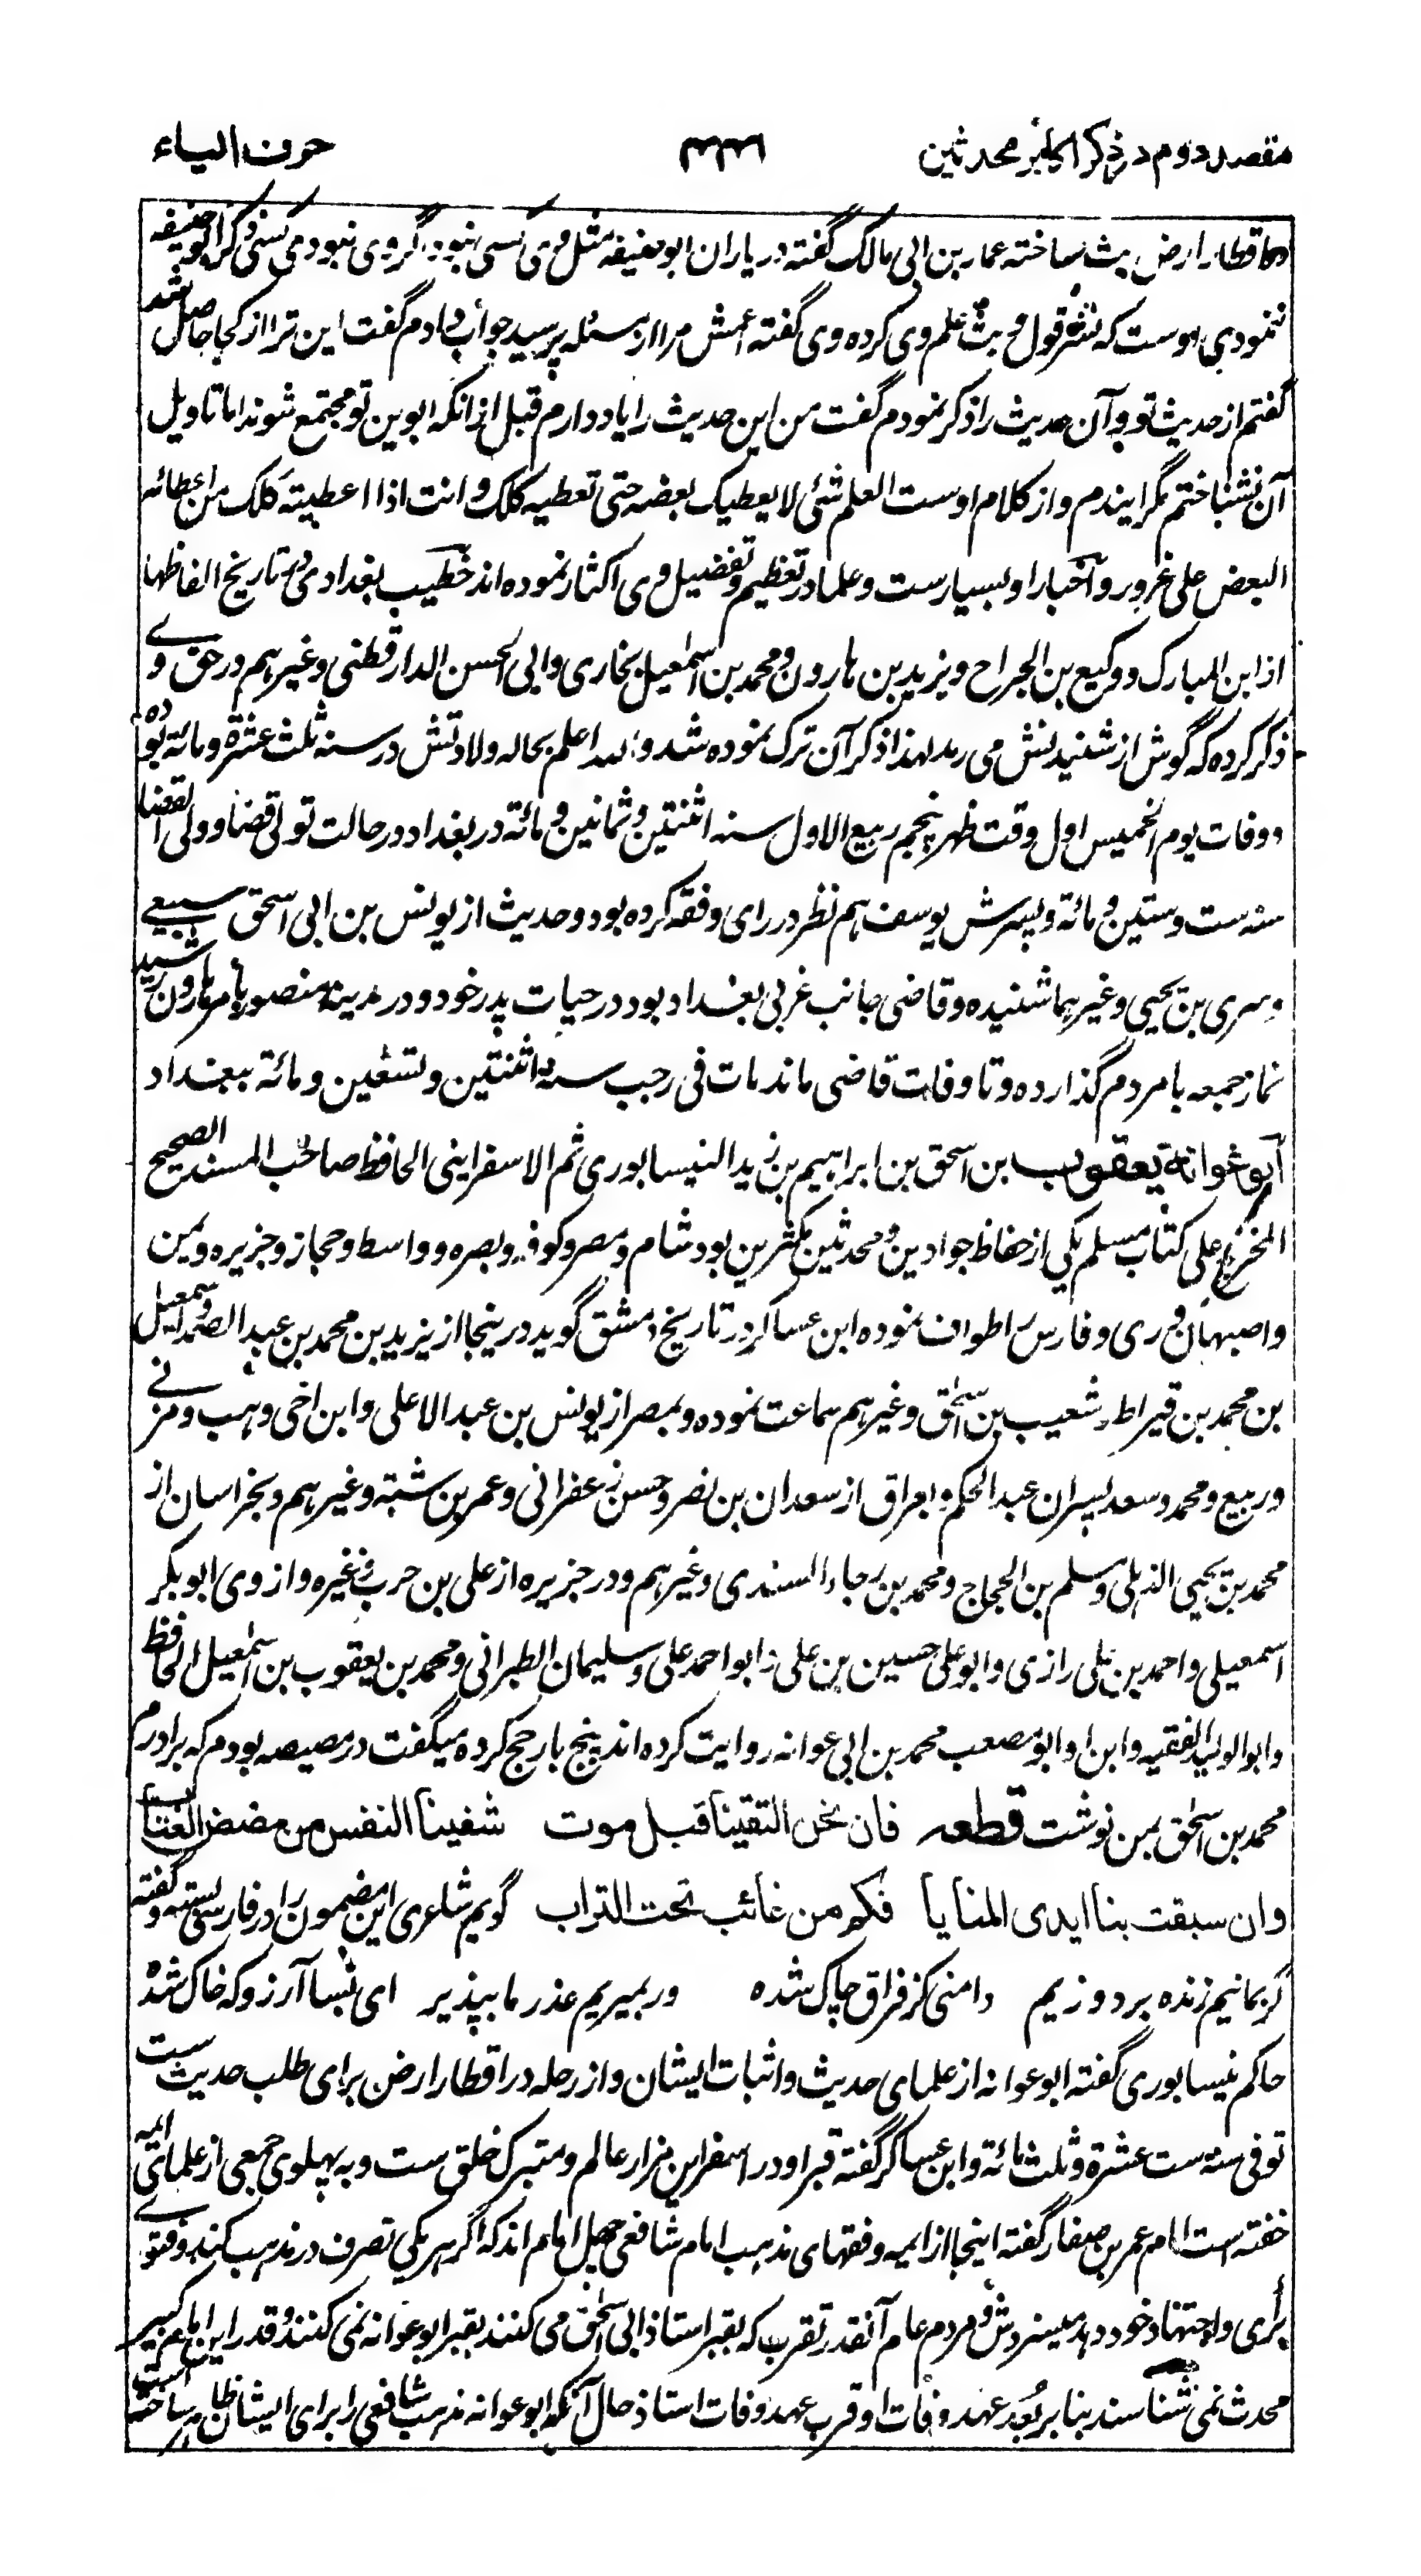 مقصد دوم در ذکر اکابر محدثین ۴۴۴ حرف الیاء
اقطار ارض بث ساخته عمار بن ابی مالک گفته در یاران ابو حنیفه مثل وی کسی نبود اگر وی نبودی کسی ذکر ابو حنیفه
ننمودی اوست که نشر قول و بث علم وی کرده وی گفته اعمش مرا از مسئله پرسید جواب دادم گفت این ترا از کجا حاصل شد
گفتم از حدیث تو و آن حدیث را ذکر نمودم گفت من این حدیث را یاد دارم قبل ازانکه ابوین تو مجتمع شوند اما تاویل
آن نشناختم مگر ایندم و از کلام اوست العلم شئ لا یعطیک بعضه حتی تعطیه کلک و انت اذا اعطیته کلک من اعطائه
البعض علی غرور و اخبار او بسیارست و علما در تعظیم و تفضیل وی اکثار نموده اند خطیب بغدادی در تاریخ الفاظها
از ابن المبارک و وکیع بن الجراح و یزید بن هارون و محمد بن اسمعیل بخاری و ابی الحسن الدارقطنی و غیرهم در حق وے
ذکر کرده که گوش از شنیدنش می رمد لهذا ذکر آن ترک نموده شد والله اعلم بحاله ولادتش در سنه ثلث عشرة و مائة بوده
و وفات یوم الخمیس اول وقت ظهر پنجم ربیع الاول سنه اثنتین و ثمانین و مائة در بغداد در حالت تولی قضا و ولی القضا
سنه ست و ستین و مائة و پسرش یوسف هم نظر در رای و فقه کرده بود و حدیث از یونس بن ابی اسحق سبیعے
و سری بن یحیی و غیرهما شنیده و قاضی جانب غربی بغداد بود در حیات پدر خود و در مدینه منصور بامر هارون رشید
نماز جمعه با مردم گذارده و تا وفات قاضی ماند مات فی رجب سنه اثنتین و تسعین و مائة ببغداد
ابو عوانة یعقوب بن اسحق بن ابراهیم بن زید النیسابوری ثم الاسفراینی الحافظ صاحب المسند الصحیح
المخرج علی کتاب مسلم یکی از حفاظ جوادین و محدثین مکثرین بود شام و مصر و کوفه و بصره و واسط و حجاز و جزیره و یمن
و اصبهان و ری و فارس را طواف نموده ابن عساکر در تاریخ دمشق گوید در ینجا از یزید بن محمد بن عبد الصمد و اسمعیل
بن محمد بن قیراط و شعیب بن اسحق و غیرهم سماعت نموده و بمصر از یونس بن عبد الاعلی و ابن اخی وهب و مزنے
و ربیع و محمد و سعد پسران عبد الحکم و بعراق از سعدان بن نصر و حسن زعفرانی و عمر بن شبة و غیرهم و بخراسان از
محمد بن یحیی الذهلی و مسلم بن الحجاج و محمد بن رجاء السندی و غیرهم و در جزیره از علی بن حرب و غیره و از وی ابو بکر
اسمعیلی و احمد بن علی رازی و ابو علی حسین بن علی و ابو احمد علی و سلیمان الطبرانی و محمد بن یعقوب بن اسمعیل الحافظ
و ابو الولید الفقیه و ابن او ابو مصعب محمد بن ابی عوانه روایت کرده اند پنج بار حج کرده میگفت در مصیصه بودم که برادرم
محمد بن اسحق بمن نوشت قطعه فان نحن التقینا قبل موت شفینا النفس من مضض العتاب
وان سبقت بنا ایدی المنایا فکم من غائب تحت التراب گویم شاعری این مضمون را در فارسی بسته و گفته
گر بمانیم زنده بر دوزیم دامنی کز فراق چاک شده ور بمیریم عذر ما بپذیر ای بسا آرزو که خاک شده
حاکم نیسابوری گفته ابو عوانه از علمای حدیث و اثبات ایشان و از رحله در اقطار ارض برای طلب حدیث ست
توفی سنه ست عشرة و ثلث مائة و ابن عساکر گفته قبر او در اسفراین مزار عالم و متبرک خلق ست و به پهلوی وی جمعی از علمای ائمه
خفته است امام عمر بن صفار گفته اینجا از ایمه و فقهای مذهب امام شافعی چهل امام اند که اگر هر یکی تصرف در مذهب کند و فتوے
برای و اجتهاد خود دهد میسزدش و مردم عام آنقدر تقرب که بقبر استاذ ابی اسحق می کنند بقبر ابو عوانه نمی کنند و قدر این امام کبیر
محدث نمی شناسند بنا بر بُعد عهد وفات او و قرب عهد وفات استاذ حال آنکه ابو عوانه مذهب شافعی را برای ایشان ظاهر ساخته است